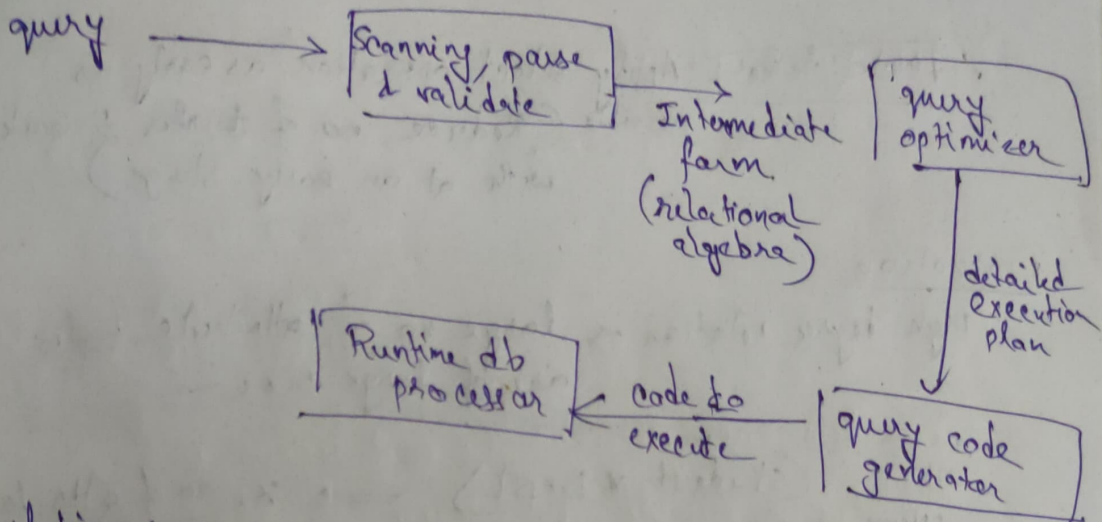 query
Scanning, parse
& validate
Intermediate
form
(relational
algebra)
query
optimizer
detailed
execution
plan
query code
generator
code to
execute
Runtime db
processor